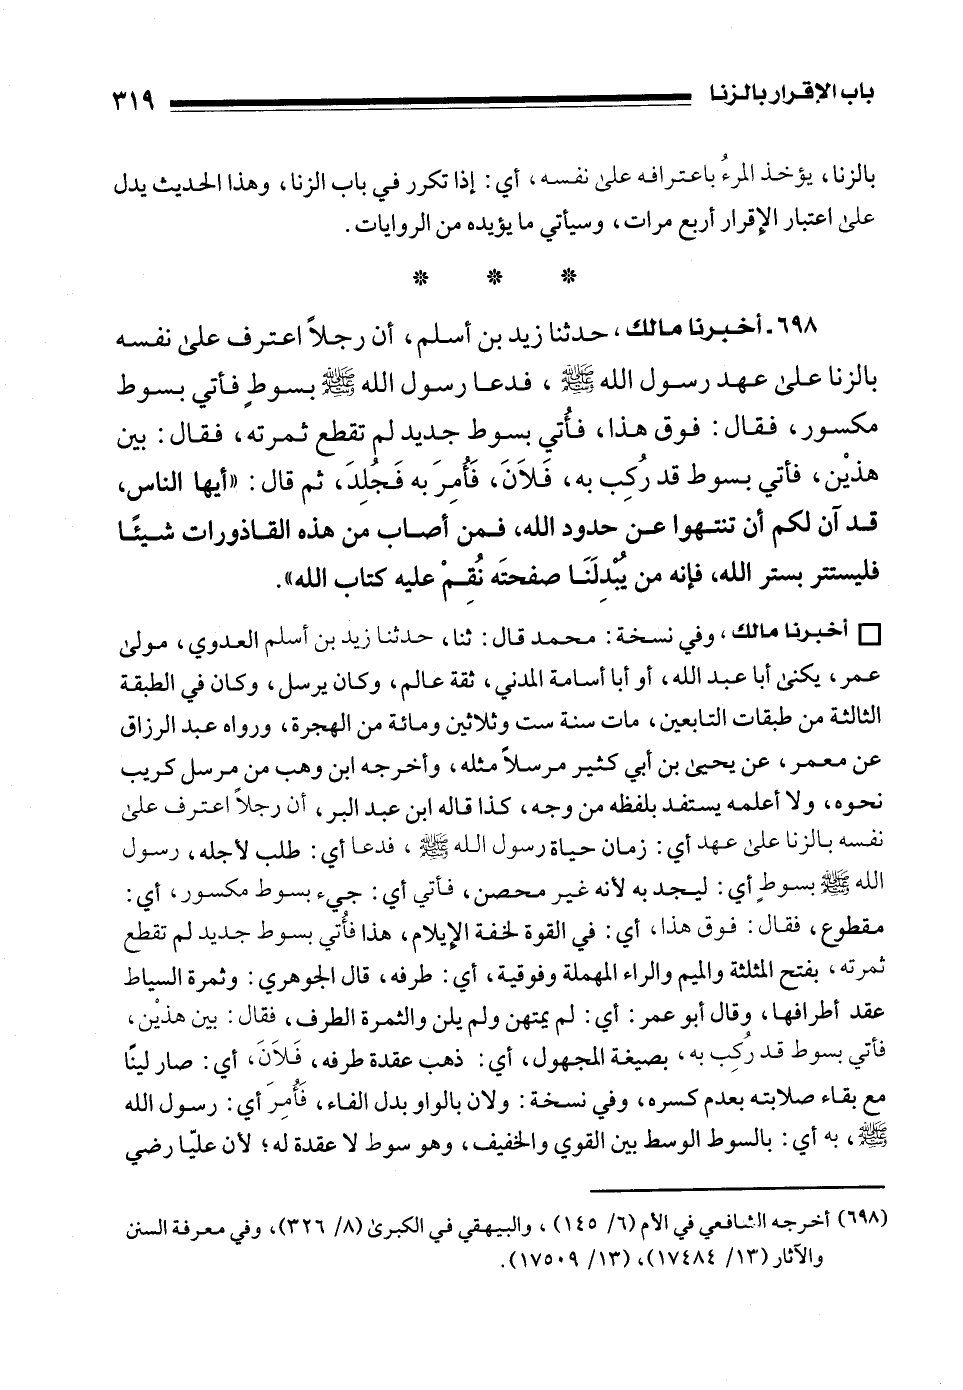 باب الإقرار بالزنا ٣١٩
بالزنا، يؤخذ المرءُ باعترافه علىٰ نفسه، أي: إذا تكرر في باب الزنا، وهذا الحديث يدل
علىٰ اعتبار الإقرار أربع مرات، وسيأتي ما يؤيده من الروايات.
* * *
٦٩٨- أخبرنا مالك، حدثنا زيد بن أسلم، أن رجلاً اعترف علىٰ نفسه
بالزنا علىٰ عهد رسول الله ﷺ، فدعا رسول الله ﷺ بسوطٍ فأتي بسوط
مكسور، فقال: فوق هذا، فأُتي بسوط جديد لم تقطع ثمرته، فقال: بين
هذيْن، فأتي بسوط قد رُكِب به، فَلاَنَ، فَأُمِرَ به فَجُلِدَ، ثم قال: «أيها الناس،
قد آن لكم أن تنتهوا عن حدود الله، فمن أصاب من هذه القاذورات شيئًا
فليستتر بستر الله، فإنه من يُبْدِلَنَا صفحتَه نُقِمْ عليه كتاب الله».
□ أخبرنا مالك، وفي نسخة: محمد قال: ثنا، حدثنا زيد بن أسلم العدوي، مولىٰ
عمر، يكنىٰ أبا عبد الله، أو أبا أسامة المدني، ثقة عالم، وكان يرسل، وكان في الطبقة
الثالثة من طبقات التابعين، مات سنة ست وثلاثين ومائة من الهجرة، ورواه عبد الرزاق
عن معمر، عن يحيىٰ بن أبي كثير مرسلاً مثله، وأخرجه ابن وهب من مرسل كريب
نحوه، ولا أعلمه يستفد بلفظه من وجه، كذا قاله ابن عبد البر، أن رجلاً اعترف علىٰ
نفسه بالزنا علىٰ عهد أي: زمان حياة رسول الله ﷺ، فدعا أي: طلب لأجله، رسول
الله ﷺ بسوطٍ أي: ليجد به لأنه غير محصن، فأتي أي: جيء بسوط مكسور، أي:
مقطوع، فقال: فوق هذا، أي: في القوة لخفة الإيلام، هذا فأُتي بسوط جديد لم تقطع
ثمرته، بفتح المثلثة والميم والراء المهملة وفوقية، أي: طرفه، قال الجوهري: وثمرة السياط
عقد أطرافها، وقال أبو عمر: أي: لم يمتهن ولم يلن والثمرة الطرف، فقال: بين هذيْن،
فأتي بسوط قد رُكِب به، بصيغة المجهول، أي: ذهب عقدة طرفه، فَلاَنَ، أي: صار لينًا
مع بقاء صلابته بعدم كسره، وفي نسخة: ولان بالواو بدل الفاء، فَأُمِرَ أي: رسول الله
ﷺ، به أي: بالسوط الوسط بين القوي والخفيف، وهو سوط لا عقدة له؛ لأن عليًا رضي
(٦٩٨) أخرجه الشافعي في الأم (٦/ ١٤٥)، والبيهقي في الكبرىٰ (٨/ ٣٢٦)، وفي معرفة السنن
والآثار (١٣/ ١٧٤٨٤)، (١٣/ ١٧٥٠٩).